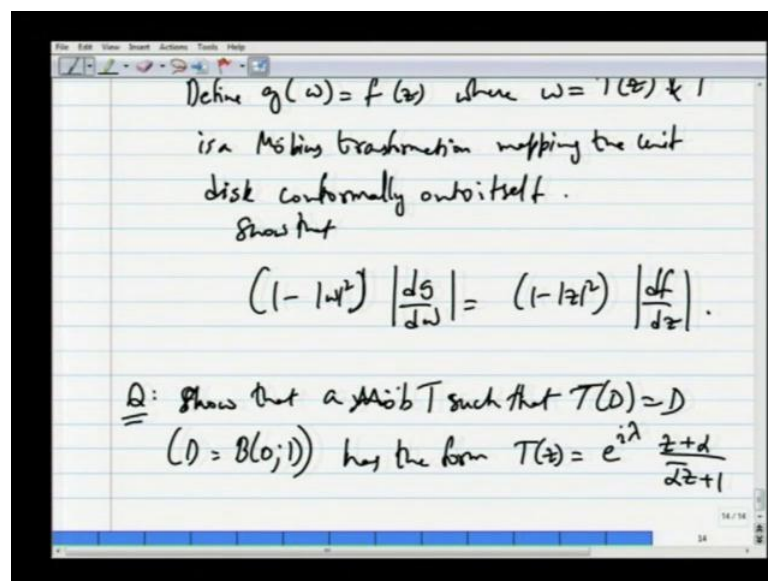 File Edit View Insert Actions Tools Help
Define g(w) = f(z) where w = T(z) & T
is a Möbius trasformation mapping the unit
disk conformally onto itself.
Show that
(1-|w|²) |dg/dw| = (1-|z|²) |df/dz|.
Q: Show that a Möb T such that T(D) = D
(D = B(0;1)) has the form T(z) = e^{iλ} (z+α)/(ᾱz+1)
14/14
14